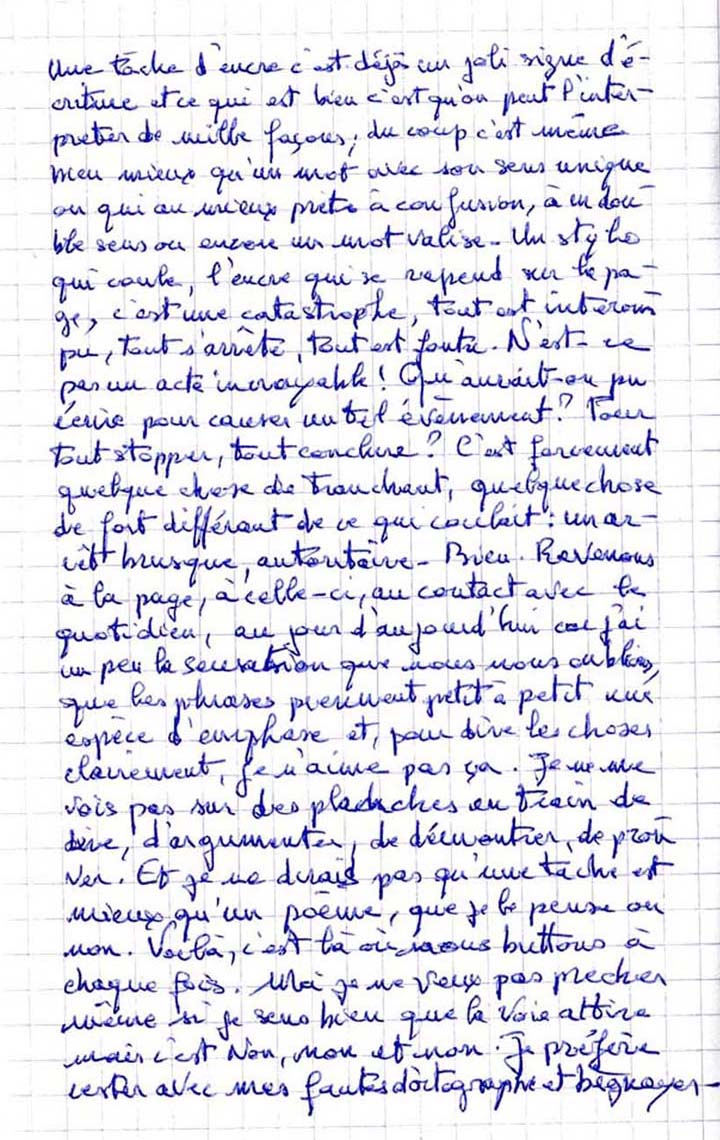 Une tache d'encre c'est déjà un joli signe d'é-
criture et ce qui est bien c'est qu'on peut l'inter-
preter de mille façons, du coup c'est même
mieux qu'un mot avec son sens unique
ou qui au mieux prete à confusion, à un dou-
ble sens ou encore un mot valise - Un stylo
qui coule, l'encre qui se repend sur la pa-
ge, c'est une catastrophe, tout est interom
pu, tout s'arrête, tout est foutu. N'est-ce
pas un acte incroyable ! Qu'aurait-on pu
écrire pour causer un tel évènement ? Pour
tout stopper, tout conclure ? C'est forcement
quelque chose de tranchant, quelque chose
de fort différant de ce qui coulait : un ar-
rêt brusque, autoritaire - Bien. Revenons
à la page, à celle-ci, au contact avec le
quotidien, au jour d'aujourd'hui car j'ai
un peu la sensation que nous nous oublions,
que les phrases prennent petit à petit une
espèce d'emphase et, pour dire les choses
clairement, je n'aime pas ça. Je ne me
vois pas sur des planches en train de
dire, d'argumenter, de démontrer, de prou
ver. Et je ne dirais pas qu'une tache est
mieux qu'un poème, que je le pense ou
non. Voilà, c'est là où nous buttons à
chaque fois. Moi je ne veux pas precher
même si je sens bien que la voie attire
mais c'est Non, non et non. Je préfère
rester avec mes fautes d'ortographe et bégnayer -